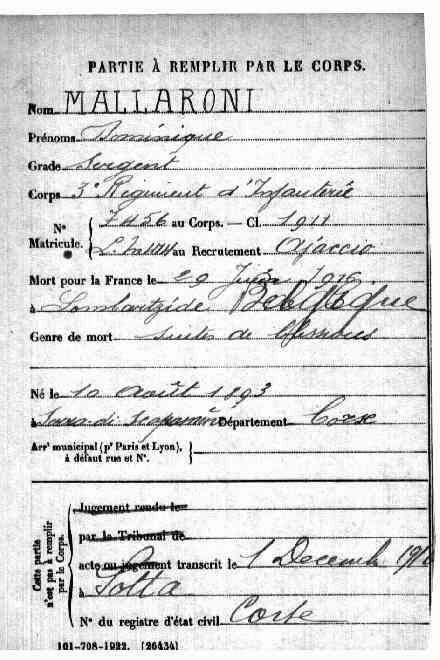 PARTIE À REMPLIR PAR LE CORPS.
Nom MALLARONI
Prénoms Dominique
Grade Sergent
Corps 3e Regiment d'Infanterie
N° Matricule. 7456 au Corps. — Cl. 1911
au Recrutement Ajaccio
Mort pour la France le 29 1916
à Lombartzide Belgique
Genre de mort suites de blessures
Né le 10 Août 1893
à Serra di Scopamène Département Corse
Arrt municipal (pr Paris et Lyon), à défaut rue et N°.
Cette partie n'est pas à remplir par le Corps.
Jugement rendu le
par le Tribunal de
acte ou jugement transcrit le 1 Decemb
à Sotta
N° du registre d'état civil Corse
101-708-1922. [26434]